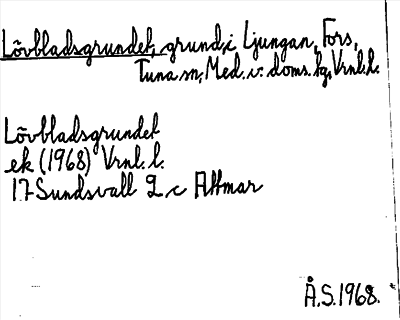 Lövbladsgrundet, grund, i Ljungan, Fors,
Tuna sn, Med. v. doms. hg, Vrnl. l.
Lövbladsgrundet
ek (1968) Vrnl. l.
17 Sundsvall 2 c Attmar
Å.S. 1968.